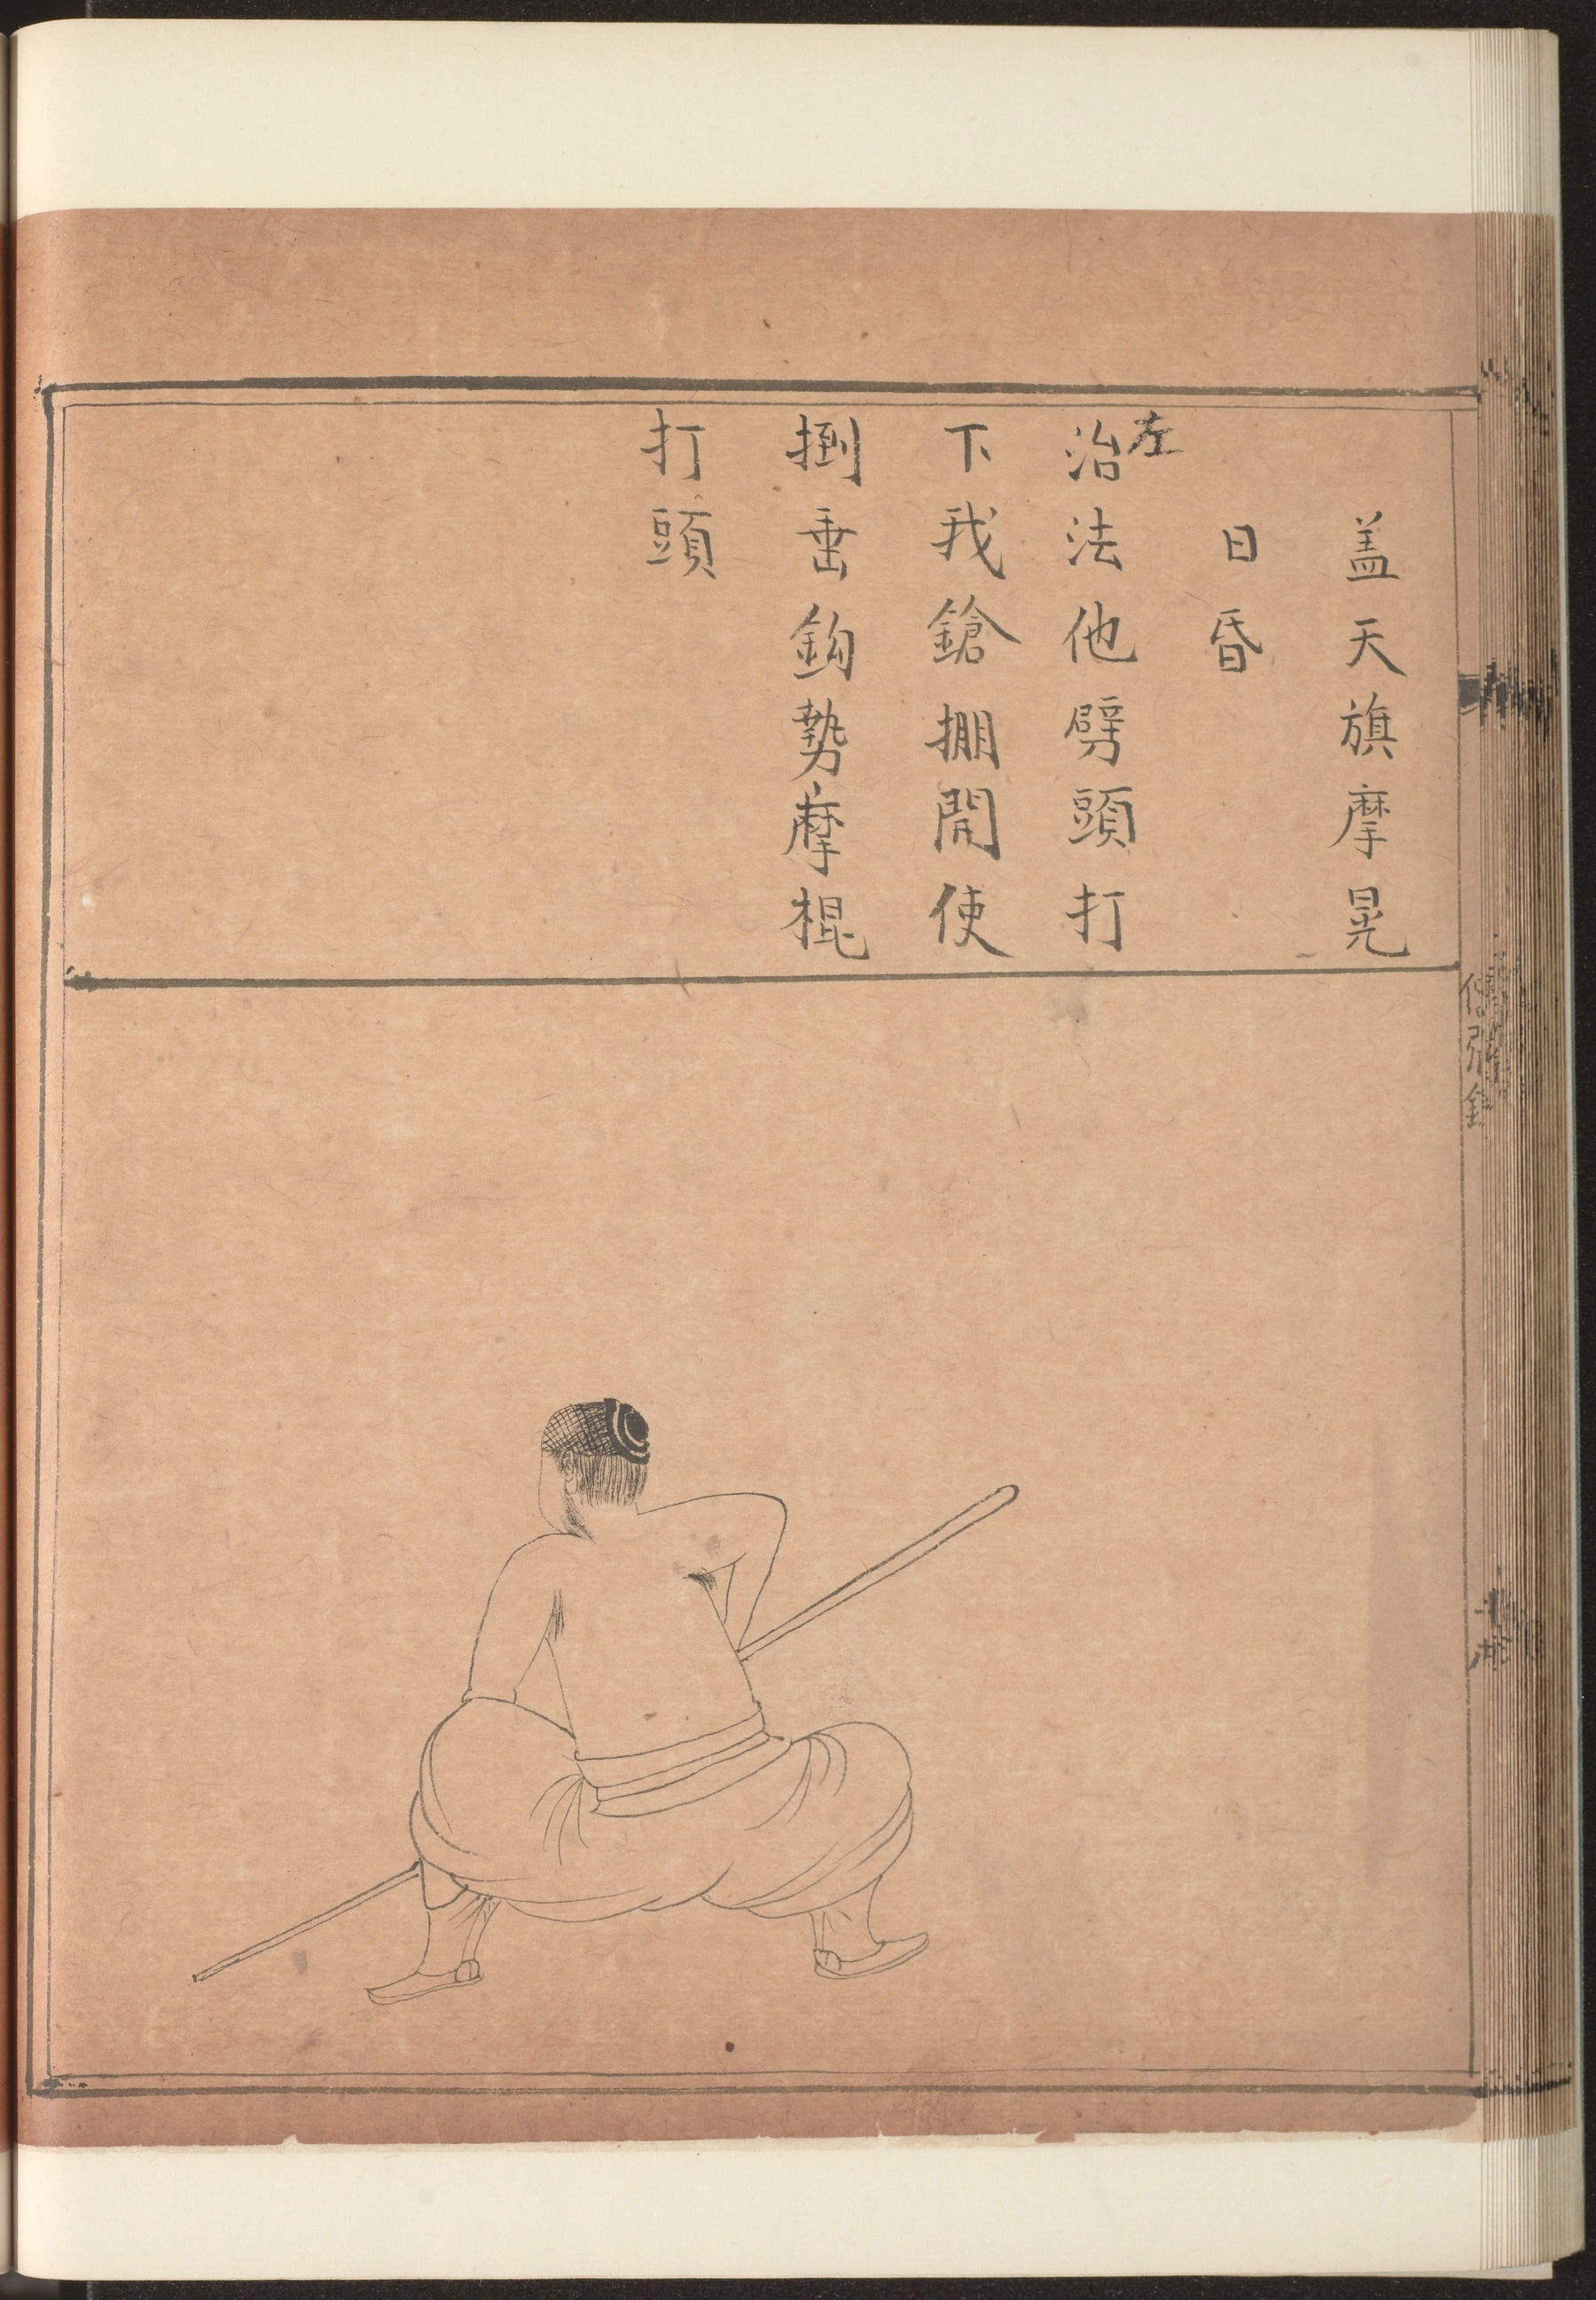 盖天旗摩晃
日昏
左
治法他劈頭打
下我鎗掤開使
捯垂鈎勢摩棍
打頭